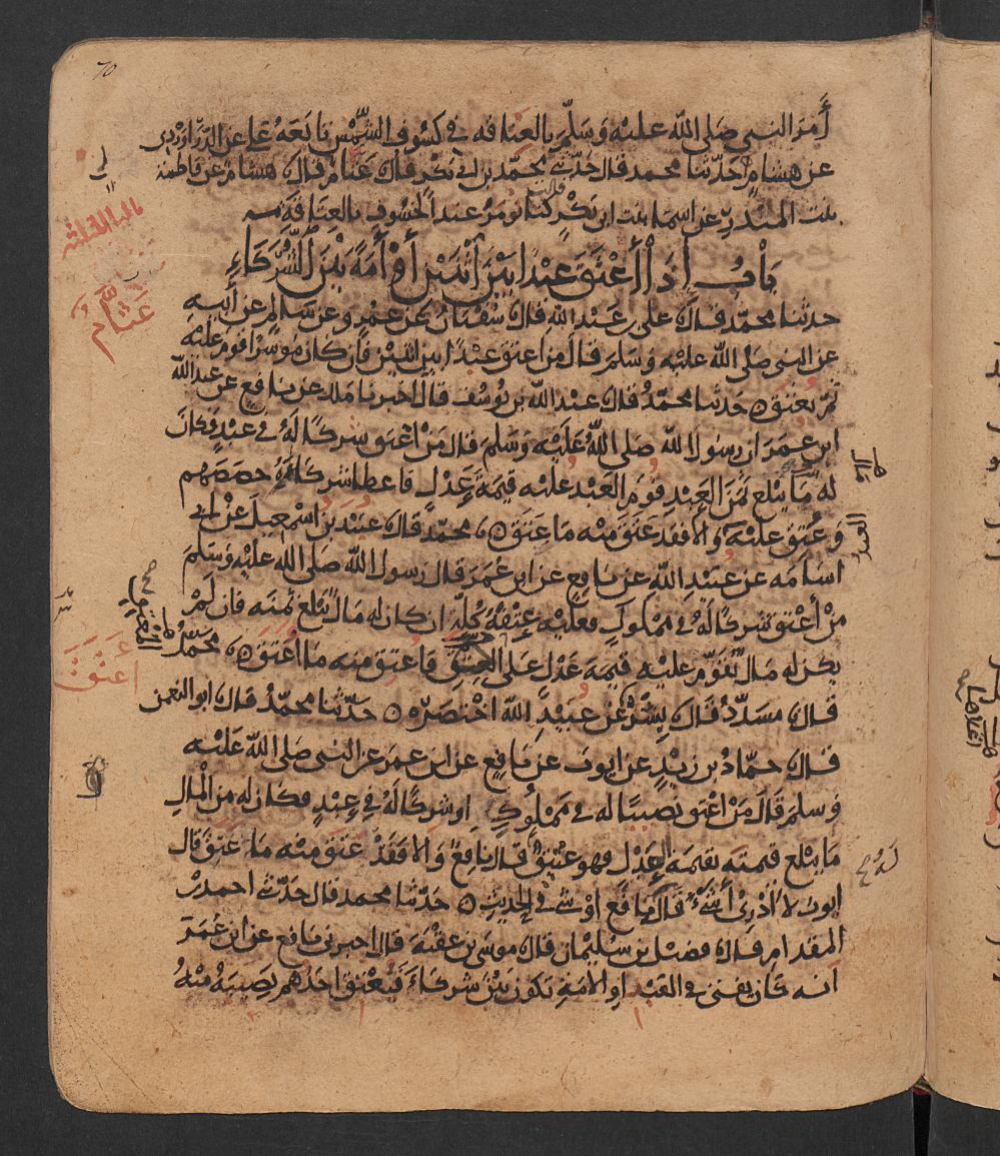 70
أَمَرَ النبي صَلى الله عليْه وَسَلّم بِالعتاقه في كسُوفِ الشّمْسِ تابَعَهُ علي عن الدّراوَرْدِي
عن هِشامٍ حَدّثنا محمد قال حدّثني محمّد بن أبي بَكْر قال عَثامٌ قال هشامٌ عن فاطمة
بنت المنذر عن اسما بنت ابي بَكْر قالت كنا نُومَرُ عند الخسُوفِ بالعتاقَةِ
بابُ اذَا أعْتَقَ عبْدا بَيْنَ اثْنَيْنِ أوْ أَمَةً بَيْنَ الشُّرَكَاءِ
حدثنا محمّد قال علي بن عَبْد الله قال سُفْيَان عن عمْرو عن سَالمٍ عن أبيه
عن النبي صَلى الله عليْه وَسَلم قال من اعتق عبْدًا بين اثنين فان كان مُوسرًا قوم عليْه
ثمّ يُعتَق ه حَدثنا محمّدٌ قال عبْد الله بن يُوسُف قال اخبرنا مالك عن نافع عن عبد الله
ابن عُمَرَ ان رسُول الله صَلى اللهُ عَلَيْه وَسَلم قال مَنْ اعْتق شركًا لَهُ في عبْدٍ فكان
له مَا يبْلغ ثمَنَ العَبدِ قُوّمَ العَبْد عليْه قيمَةَ عَدْلٍ فاعطا شركَاءَهُ حصَصَهم
وَعُتِقَ عليْه وَالا فقد عَتَقَ منه مَا عَتَق ه محمّد قال عبيْد بن اسْمعِيلَ عن أبي
اسَامَه عن عبَيْدِ اللهِ عن نافعٍ عن ابن عُمَرَ قال رسول الله صَلى الله عليْه وَسَلم
مَنْ أعْتَق شركًا لَهُ في ممْلوكٍ فعليْه عِتقُهُ كُلّهِ ان كان له مَال يَبْلغ ثمنَه فان لَمْ
يكن له مَال يُقَوّم عليْه قيمَه عَدْلٍ عَلى المعتِقِ فاعتِق منه ما أعْتَقَ ه محمّدٌ
قال مسَدّدٌ قال بِشْرٌ عن عبَيْدِ الله اخْتَصَرَهُ ه حَدّثنا محمّدٌ قال ابو النعمن
قال حمّادُ بن زيْدٍ عن ايوبَ عن نافعٍ عن ابن عمَرَ عن النبي صَلى الله عَليْه
وَسلم قَالَ مَنْ اعْتق نصيبًا له في ممْلُوكٍ اوشركًا لَهُ في عبْدٍ فكان له من المَالِ
مَا يبْلغ قيمتَه بقيمَة العَدْلِ فهو عتيقٌ قال نافعٌ وَالا فقَدْ عتق منه مَا عتق قال
ايوبُ لا أدْرِي أشَيءٌ قَالَهُ نافعٌ اوْ شيٌ في الحديثِ ه حَدّثنا محمد قال حَدّثني احمد بن
المقدام قال فضيْل بن سُليْمان قال موسَى بن عقبَة قال اخبرني نافع عن ابن عُمَرَ
انه كان يفتي في العَبْد اوِ الامَةِ يكون بَيْنَ شركاءَ فيعْتق احَدُهم نصِيبَهُ مِنْهُ
عَثام
مال
العبد
أعْتَقَ